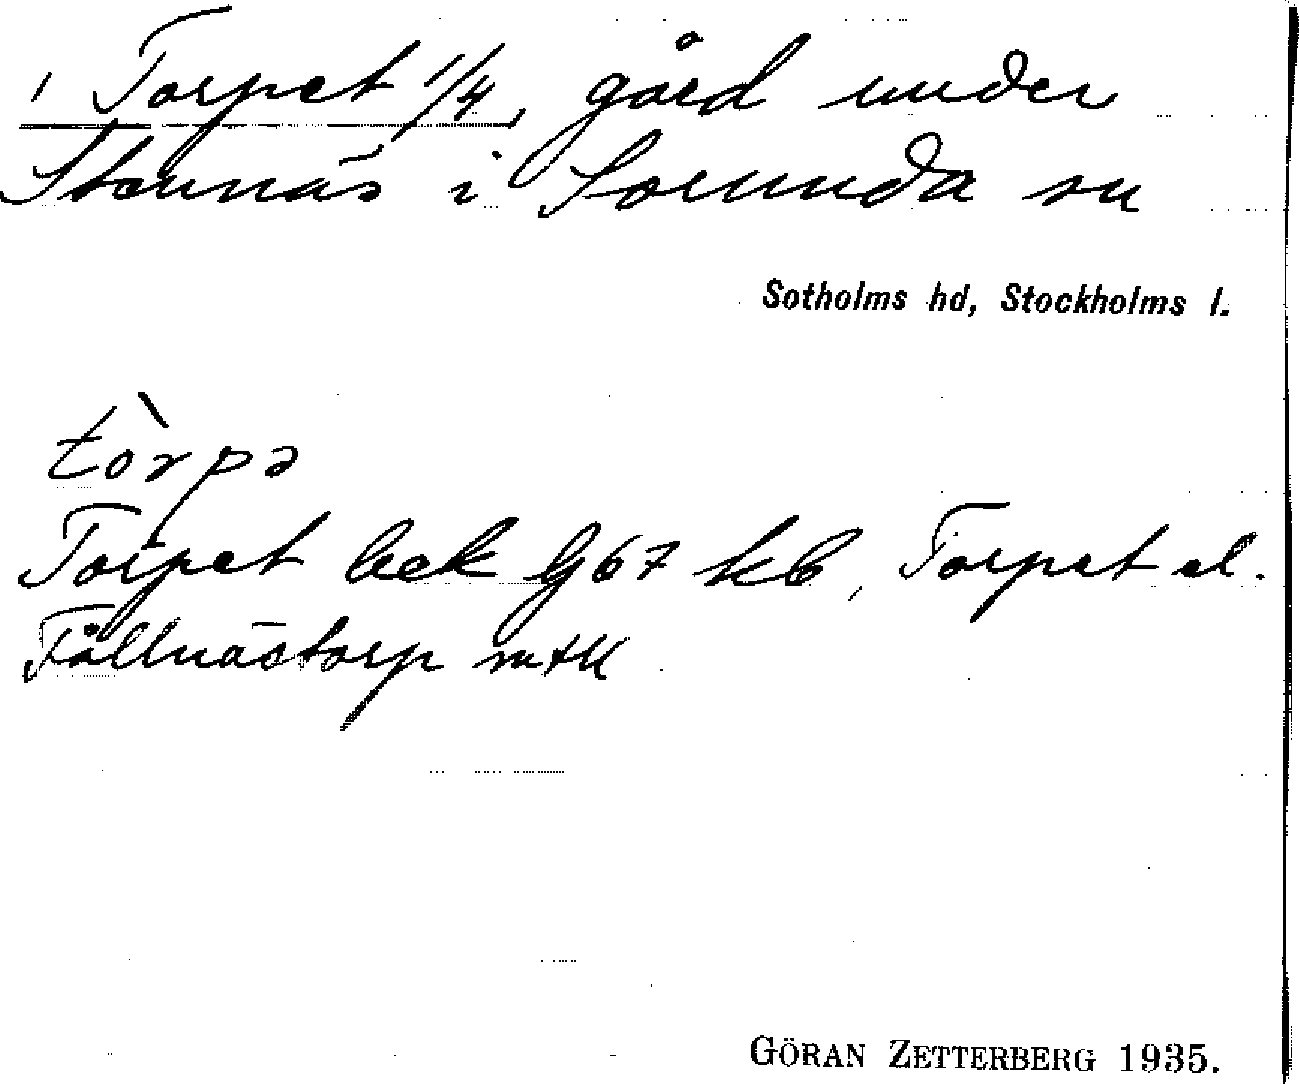 ' Torpet 1/4, gård under
Stennäs i Sorunda sn
Sotholms hd, Stockholms l.
tòrpə
Torpet bek G67 kb, Torpet el.
Fållnästorp mtK
GÖRAN ZETTERBERG 1935.